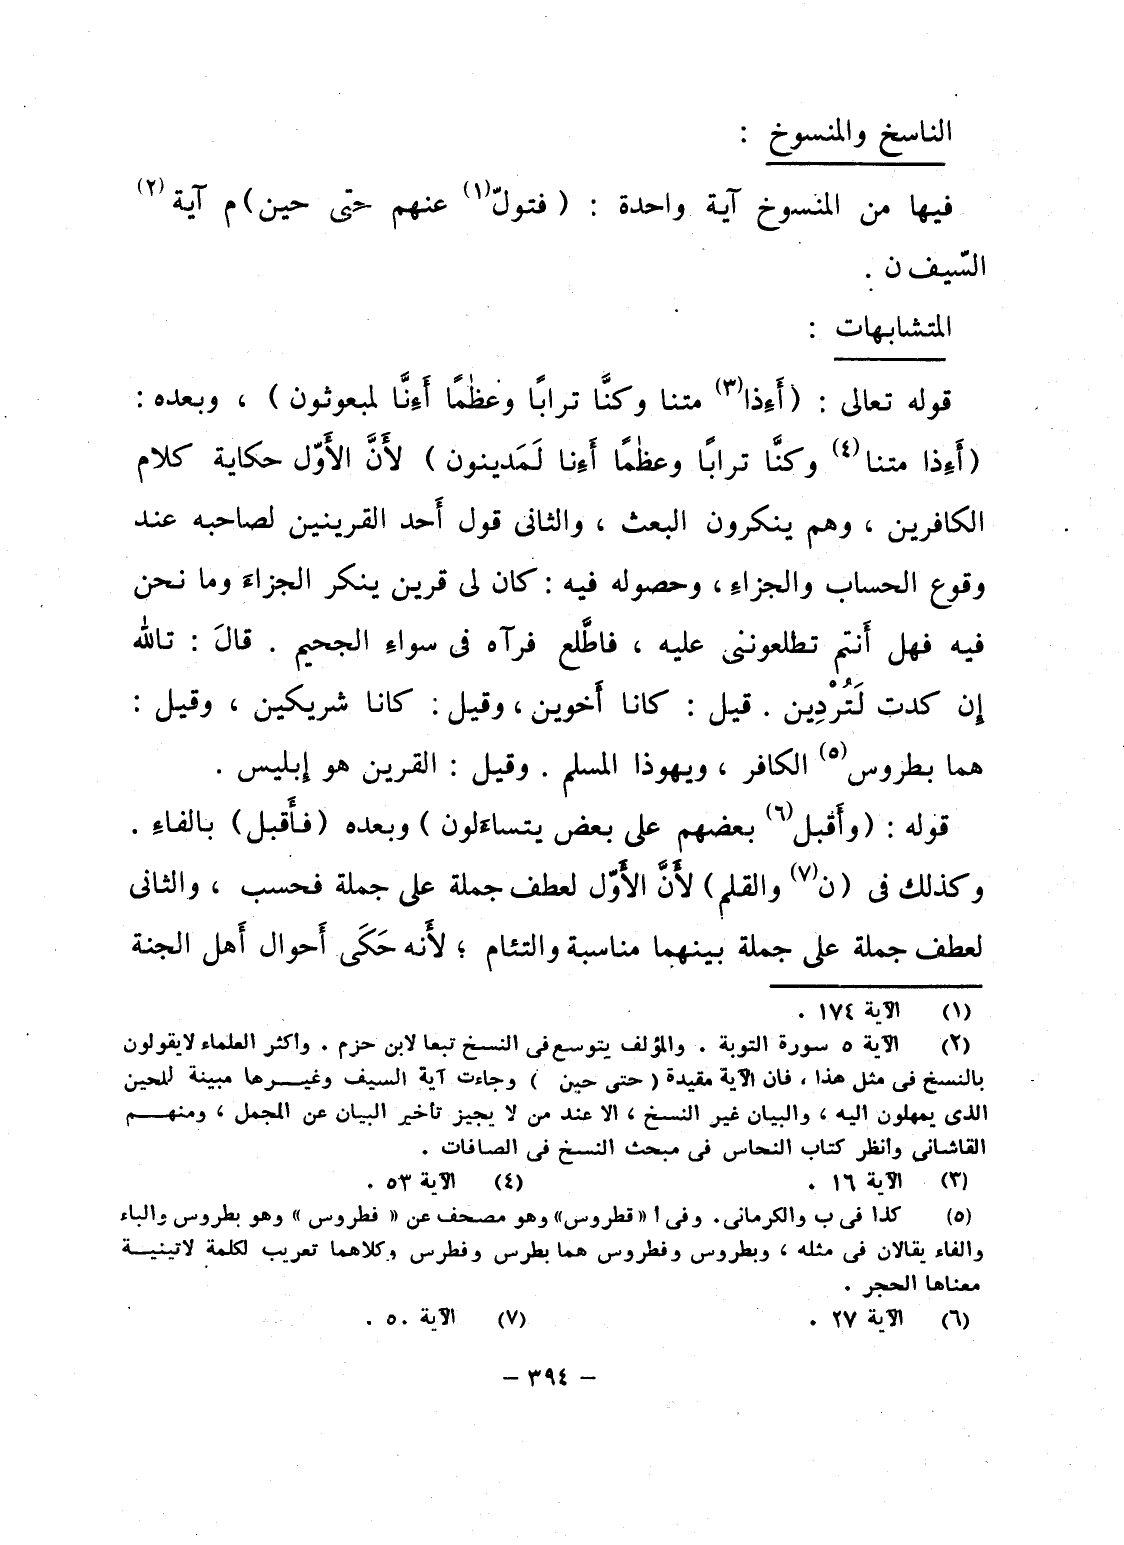 الناسخ والمنسوخ :
فيها من المنسوخ آية واحدة : ( فتولّ(١) عنهم حتى حين)م آية (٢)
السّيف ن .
المتشابهات :
قوله تعالى : (أَءِذا(٣) متنا وكنَّا ترابًا وعظٰمًا أَءِنَّا لمبعوثون ) ، وبعده :
(أَءِذا متنا(٤) وكنَّا ترابًا وعظٰمًا أَءِنا لَمَدينون ) لأَنَّ الأَوّل حكاية كلام
الكافرين ، وهم ينكرون البعث ، والثانى قول أَحد القرينين لصاحبه عند
وقوع الحساب والجزاءِ ، وحصوله فيه : كان لى قرين ينكر الجزاءَ وما نحن
فيه فهل أَنتم تطلعوننى عليه ، فاطَّلع فرآه فى سواءِ الجحيم . قالَ : تالله
إِن كدت لَتُرْدِين . قيل : كانا أَخوين ، وقيل : كانا شريكين ، وقيل :
هما بطروس(٥) الكافر ، ويهوذا المسلم . وقيل : القرين هو إِبليس .
قوله : (وأَقبل(٦) بعضهم على بعض يتساءَلون ) وبعده (فأَقبل) بالفاءِ .
وكذلك فى (ن(٧) والقلم) لأَنَّ الأَوّل لعطف جملة على جملة فحسب ، والثانى
لعطف جملة على جملة بينهما مناسبة والتئام ؛ لأَنه حَكَى أَحوال أَهل الجنة
(١) الآية ١٧٤ .
(٢) الآية ٥ سورة التوبة . والمؤلف يتوسع فى النسخ تبعا لابن حزم . وأكثر العلماء لايقولون
بالنسخ فى مثل هذا ، فان الآية مقيدة ( حتى حين ) وجاءت آية السيف وغيرها مبينة للحين
الذى يمهلون اليه ، والبيان غير النسخ ، الا عند من لا يجيز تأخير البيان عن المجمل ، ومنهم
القاشانى وانظر كتاب النحاس فى مبحث النسخ فى الصافات .
(٣) الآية ١٦ . (٤) الآية ٥٣ .
(٥) كذا فى ب والكرمانى. وفى أ «قطروس» وهو مصحف عن « فطروس » وهو بطروس والباء
والفاء يقالان فى مثله ، وبطروس وفطروس هما بطرس وفطرس وكلاهما تعريب لكلمة لاتينية
معناها الحجر .
(٦) الآية ٢٧ . (٧) الآية ٥٠ .
– ٣٩٤ –